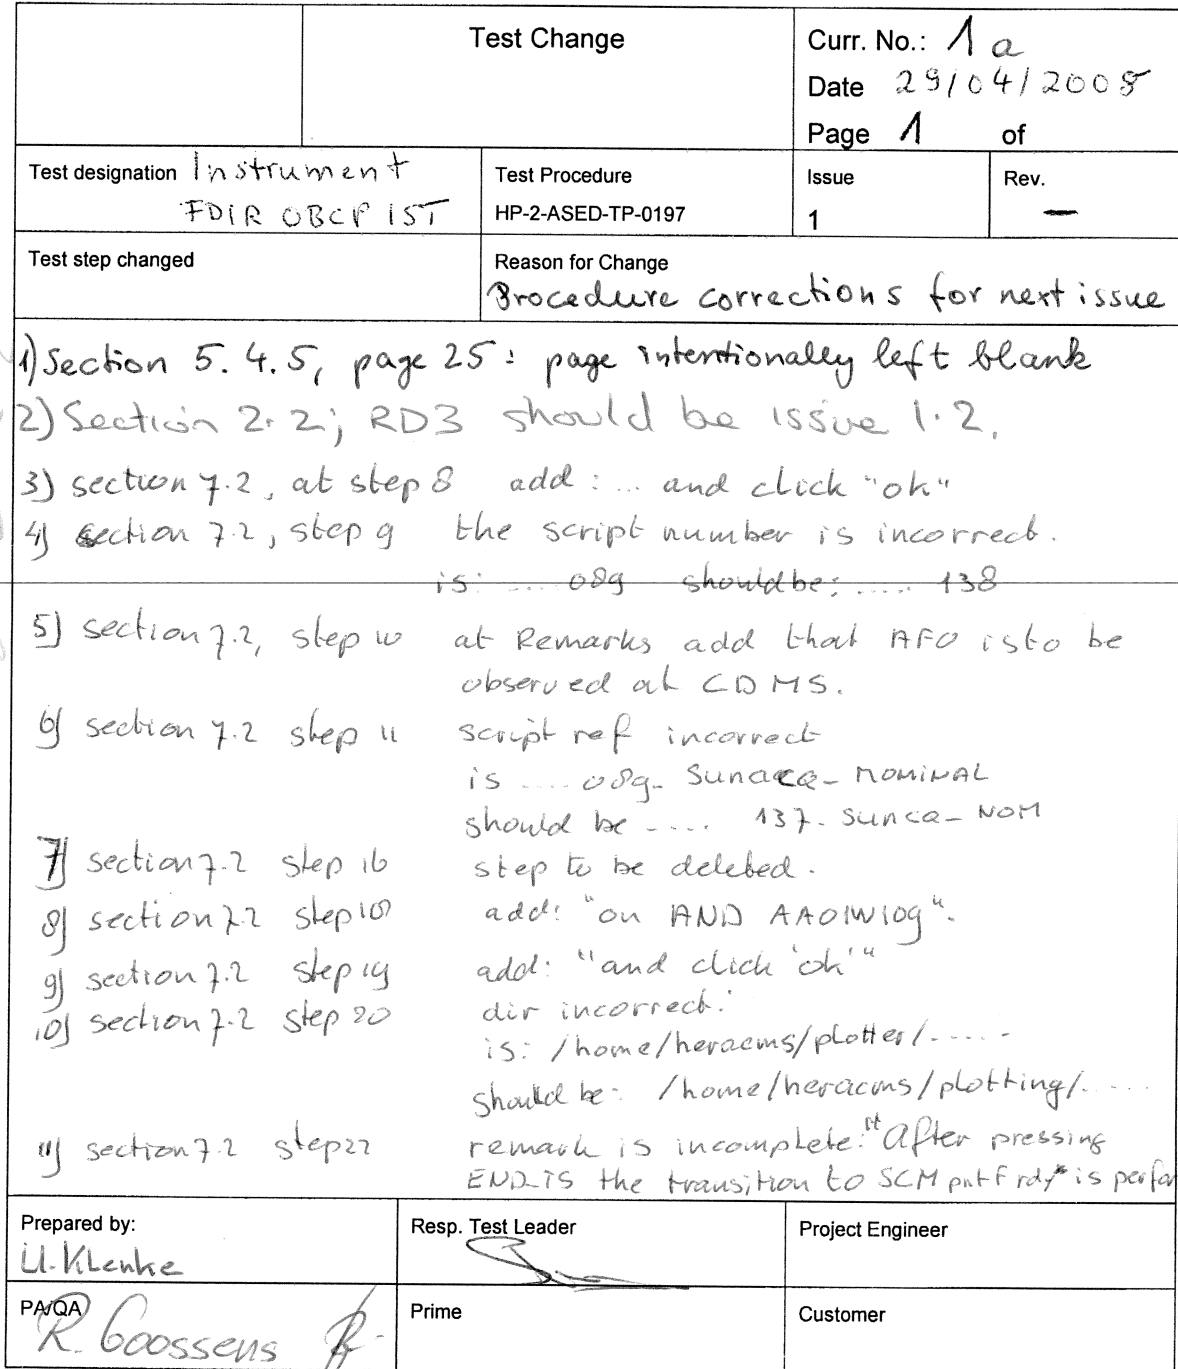 Test Change
Curr. No.: 1 a
Date 29/04/2008
Page 1 of
Test designation Instrument
FDIR OBCP IST
Test Procedure
HP-2-ASED-TP-0197
Issue
1
Rev.
—
Test step changed
Reason for Change
Procedure corrections for next issue
1) Section 5.4.5, page 25: page intentionally left blank
2) Section 2.2; RD3 should be issue 1.2.
3) section 7.2, at step 8 add: ... and click "ok"
4) section 7.2, step 9 the script number is incorrect.
is: .... 089 should be: ..... 138
5) section 7.2, step 10 at Remarks add that AFO is to be
observed at CDMS.
6) section 7.2 step 11 script ref incorrect
is .... 089_ Sunacq_ NOMINAL
should be .... 137_ sunca_ NOM
7) section 7.2 step 16 step to be deleted.
8) section 7.2 step 18 add: "on AND AAOIW109".
9) section 7.2 step 19 add: "and click 'ok'"
10) section 7.2 step 20 dir incorrect:
is: /home/heracms/plotter/.....
should be: /home/heracms/plotting/.....
11) section 7.2 step 22 remark is incomplete: "After pressing
END_TS the transition to SCM is
Prepared by:
U. Klenke
Resp. Test Leader
Project Engineer
PA/QA
R. Goossens
Prime
Customer